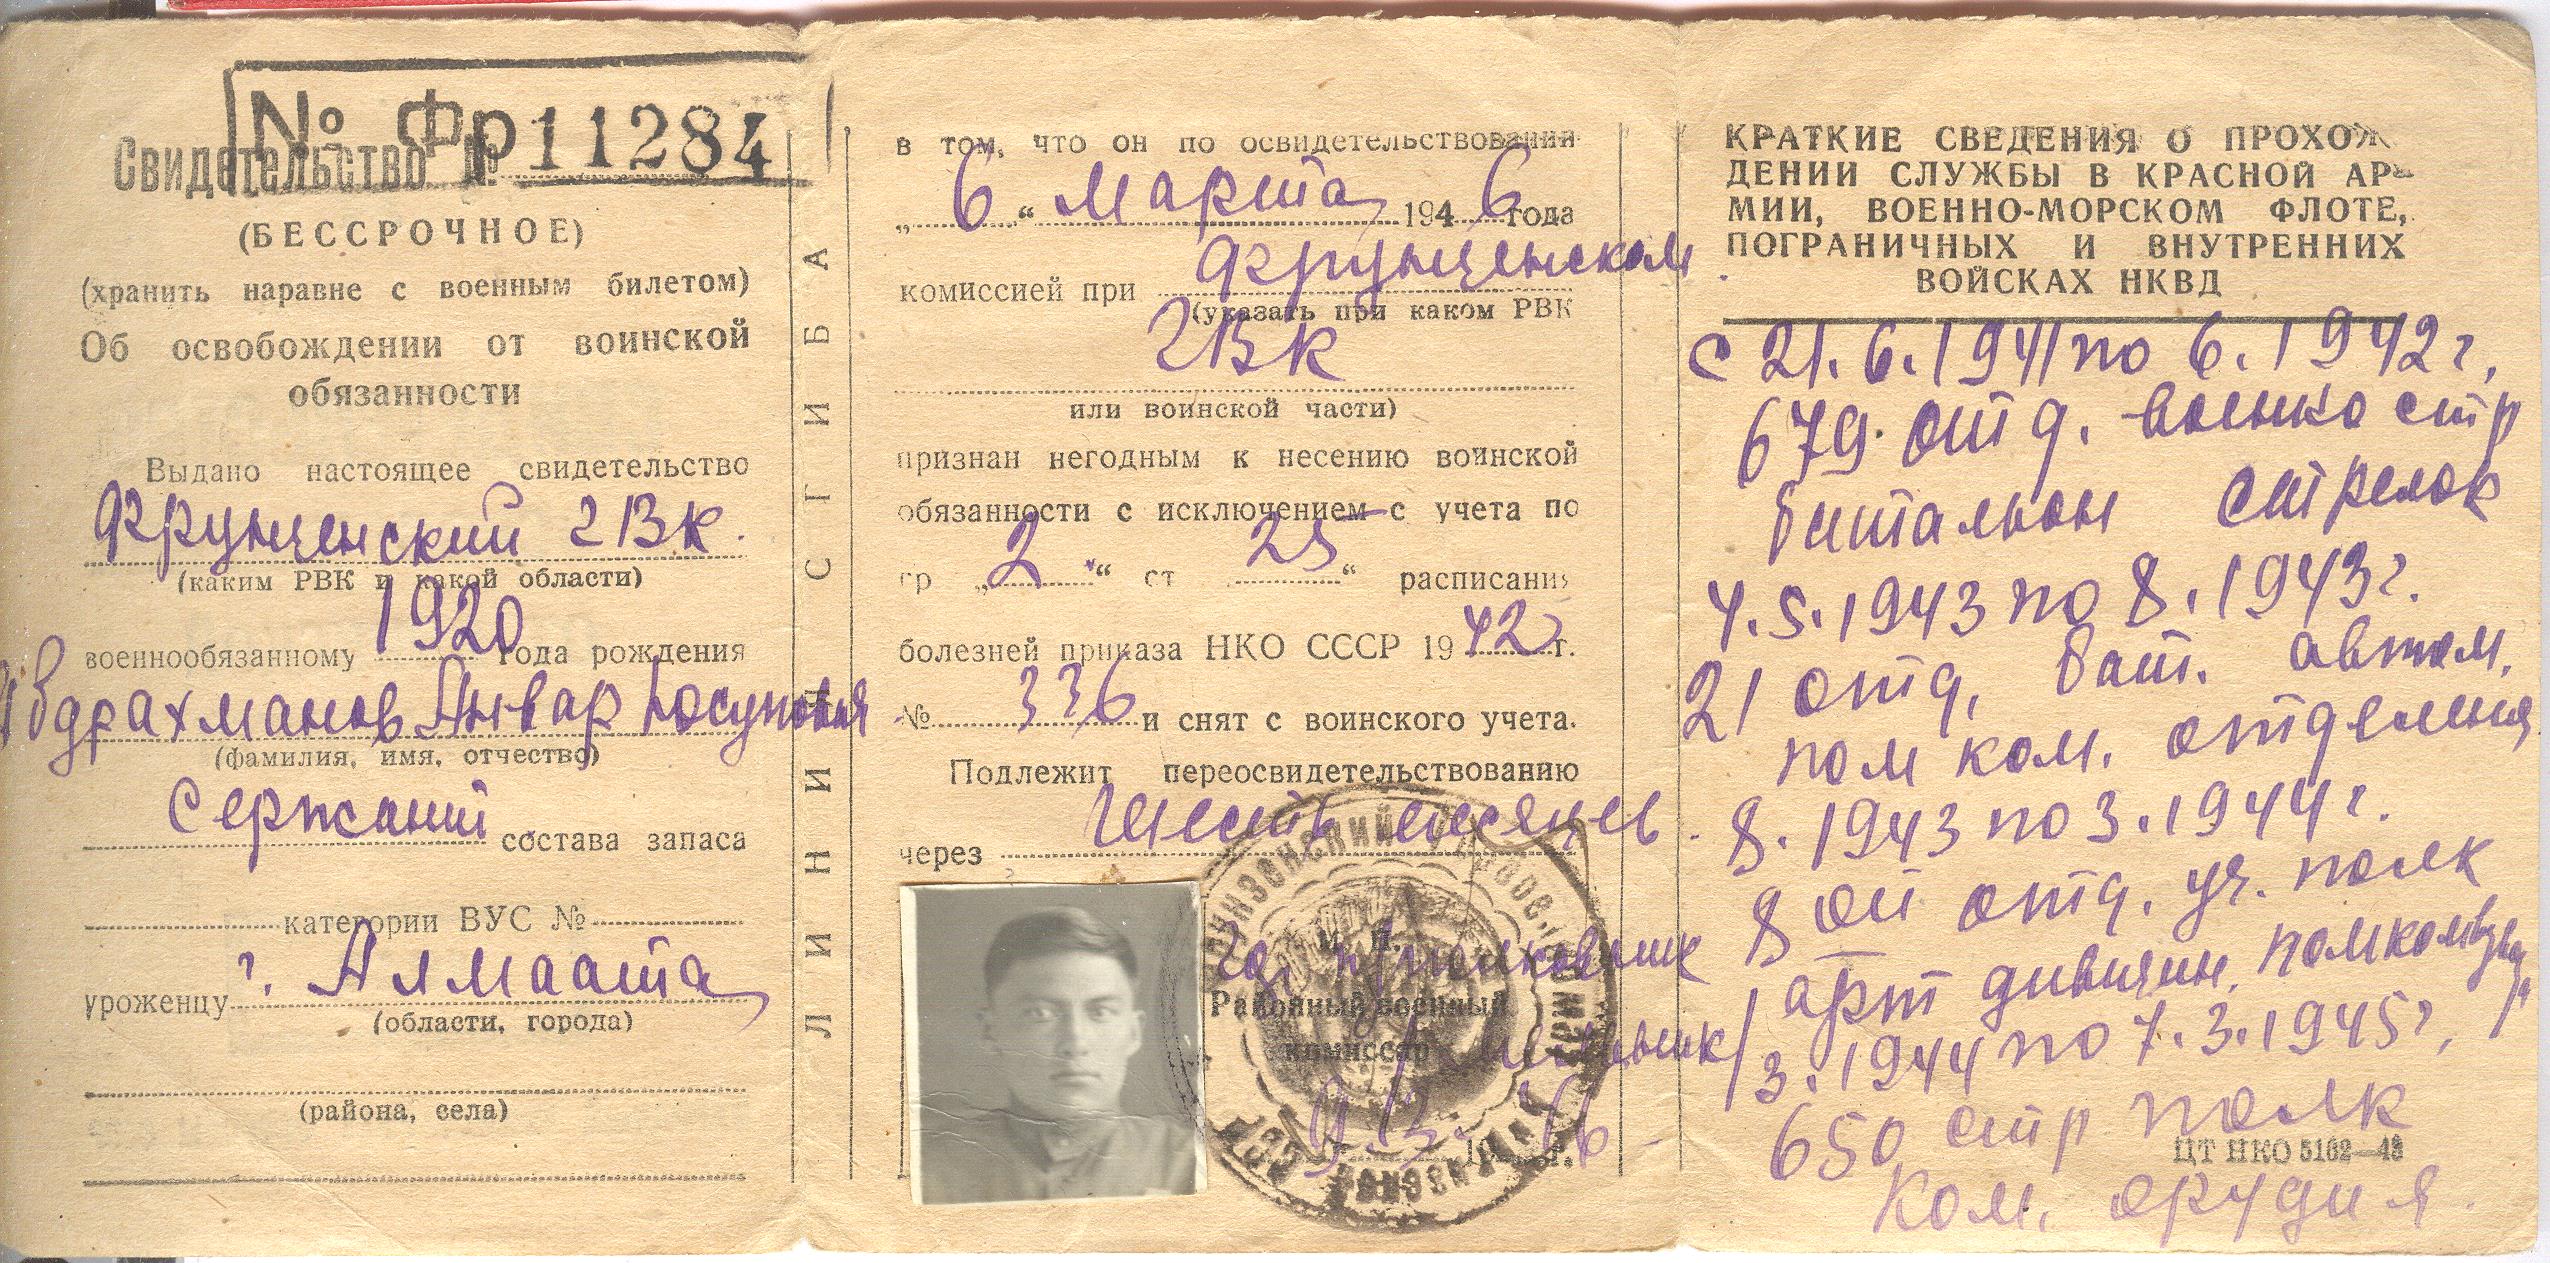 № Фр 11284
Свидетельство №
(БЕССРОЧНОЕ)
(хранить наравне с военным билетом)
Об освобождении от воинской
обязанности
Выдано настоящее свидетельство
Фрунзенский ГВК.
(каким РВК и какой области)
военнообязанному 1920 года рождения
Абдрахманов Анвар Юсупович
(фамилия, имя, отчество)
сержант состава запаса
категории ВУС №
уроженцу г. Алмаата
(области, города)
(района, села)
ЛИНИЯ СГИБА
в том, что он по освидетельствовании
„6“ марта 1946 года
комиссией при Фрунзенском
(указать при каком РВК
ГВК
или воинской части)
признан негодным к несению воинской
обязанности с исключением с учета по
гр „2“ ст 25“ расписания
болезней приказа НКО СССР 1942 г.
№ 336 и снят с воинского учета.
Подлежит переосвидетельствованию
через Шесть месяцев.
М. П.
Районный военный
комиссар
9/3. 1946 г.
КРАТКИЕ СВЕДЕНИЯ О ПРОХОЖ
ДЕНИИ СЛУЖБЫ В КРАСНОЙ АР-
МИИ, ВОЕННО-МОРСКОМ ФЛОТЕ,
ПОГРАНИЧНЫХ И ВНУТРЕННИХ
ВОЙСКАХ НКВД
с 21.6.1941 по 6.1942 г,
679. отд. военно стр
батальон стрелок
4.5.1943 по 8.1943 г.
21 отд, бат. автом.
пом ком. отделения
8.1943 по 3.1944 г.
8 ой отд. уч. полк
арт дивизион. помкомвзвод
3.1944 по 7.3.1945 г,
650 стр полк
ЦТ НКО 5162—43
Ком. орудия.